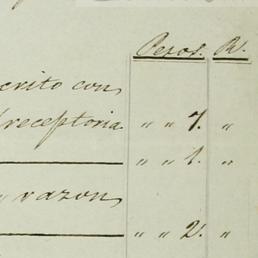 Pesos. R.
crito con
receptoria " " 7. "
" " 1. "
razon
" " 2. "